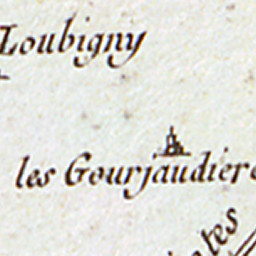 Loubigny
les Gourjaudière